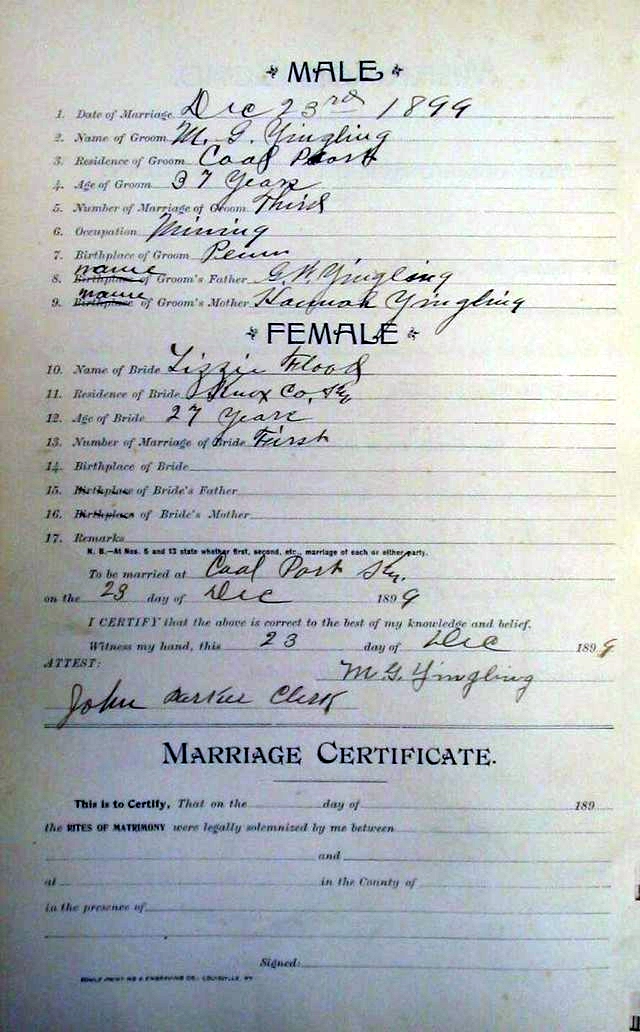 MALE
1. Date of Marriage Dec 23rd 1899
2. Name of Groom M. G. Yingling
3. Residence of Groom Coal Port
4. Age of Groom 37 Years
5. Number of Marriage of Groom Third
6. Occupation Mining
7. Birthplace of Groom Penn
name
8. Birthplace of Groom's Father G. W. Yingling
name
9. Birthplace of Groom's Mother Hannah Yingling
FEMALE
10. Name of Bride Lizzie Flood
11. Residence of Bride Knox Co, Ky
12. Age of Bride 27 Years
13. Number of Marriage of Bride First
14. Birthplace of Bride
15. Birthplace of Bride's Father
16. Birthplace of Bride's Mother
17. Remarks
N. B.—At Nos. 5 and 13 state whether first, second, etc., marriage of each or either party.
To be married at Coal Port Ky.
on the 23 day of Dec 1899
I CERTIFY that the above is correct to the best of my knowledge and belief.
Witness my hand, this 23 day of Dec 1899
ATTEST:
M. G. Yingling
John Clerk
MARRIAGE CERTIFICATE.
This is to Certify, That on the day of 189
the RITES OF MATRIMONY were legally solemnized by me between
and
at in the County of
in the presence of
Signed:
PRINTING & ENGRAVING CO., LOUISVILLE, KY